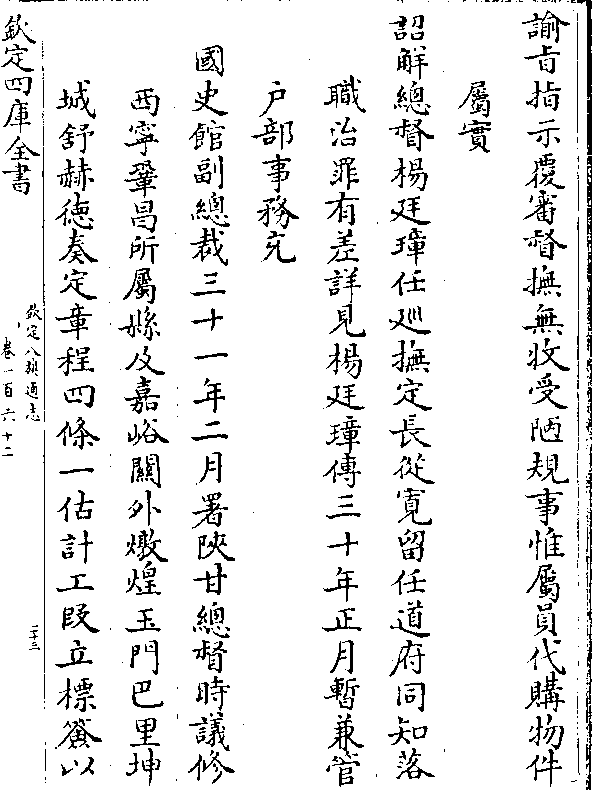 諭㫖指示覆審督撫無收受陋規事惟屬員代購物件
屬實
詔解總督楊廷璋任廵撫定長從寛留任道府同知落
職治罪有差詳見楊廷璋傳三十年正月暫兼管
户部事務充
國史館副總裁三十一年二月署陜甘總督時議修
西寧鞏昌所屬縣及嘉峪關外燉煌玉門巴里坤
城舒赫徳奏定章程四條一估計工段立標簽以
欽定四庫全書
欽定八旗通志
卷一百六十二
二十三